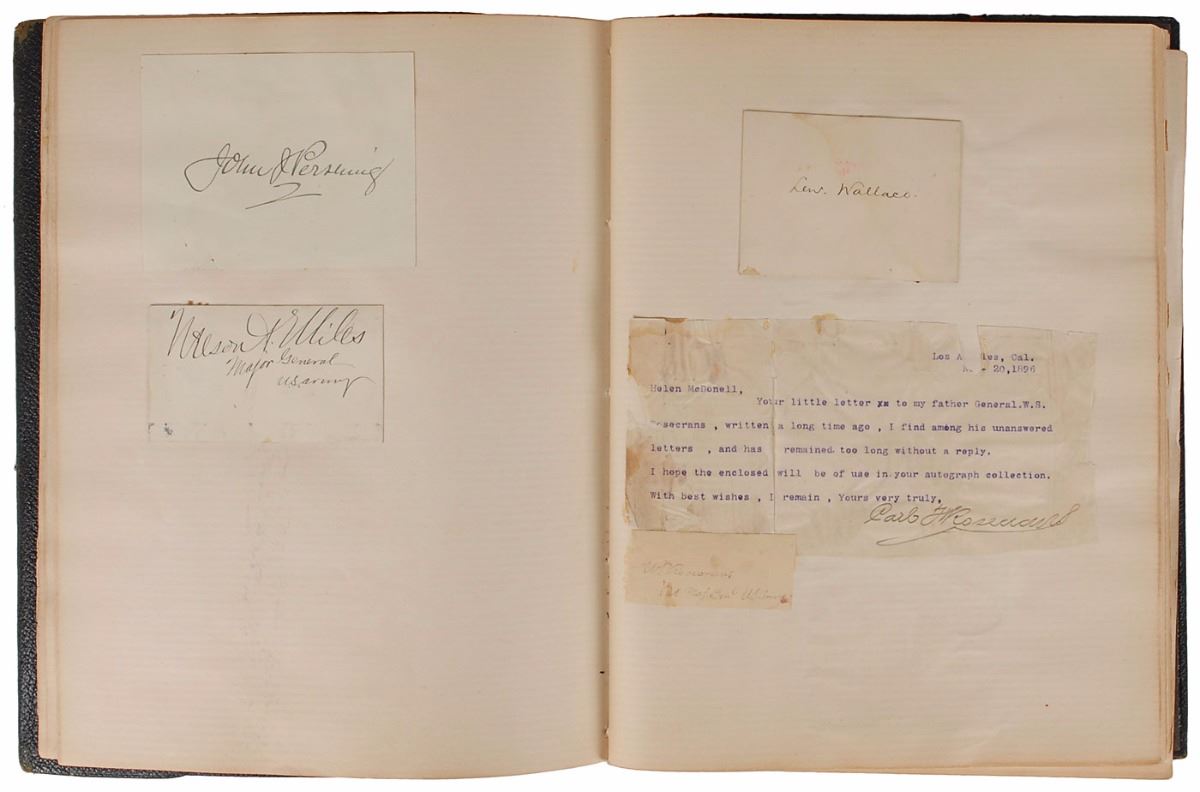 John J Pershing
Nelson A. Miles
Major General
U.S. Army
Lew. Wallace.
Los A les, Cal.
20, 1896
Helen McDonell,
Your little letter xx to my father General.W.S.
osecrans , written a long time ago , I find among his unanswered
letters , and has remained too long without a reply.
I hope the enclosed will be of use in your autograph collection.
With best wishes , I remain , Yours very truly,
Carl F Rosecrans
W S Rosecrans